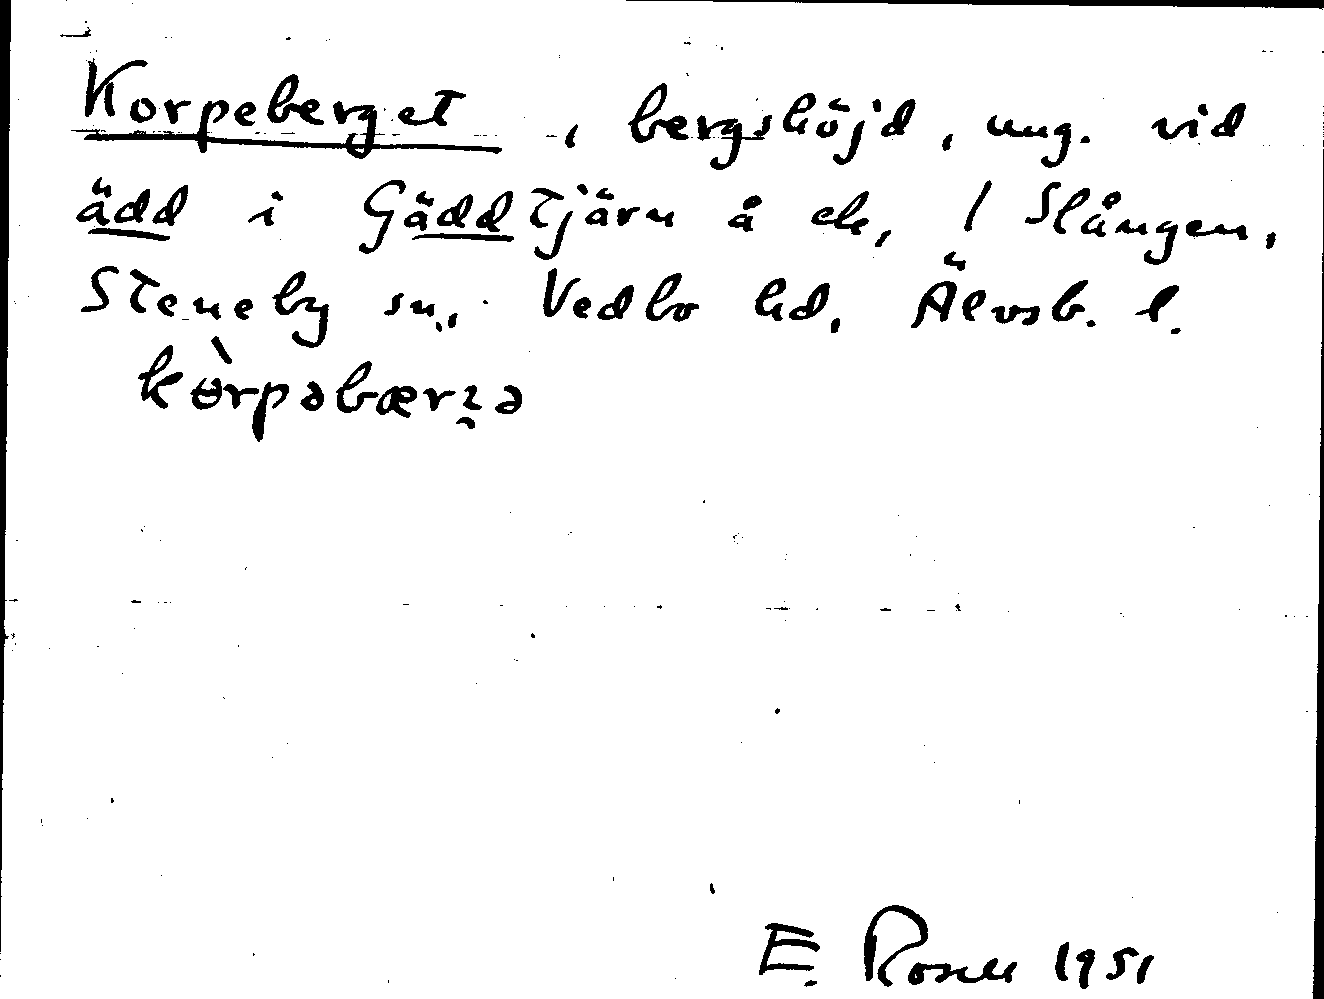 Korpeberget, bergshöjd, ung. vid
ädd i Gäddtjärn å ek, 1 Slången,
Steneby sn, Vedbo hd, Älvsb. l.
kɵ̀rpəbærʒə
E. Rosell 1951